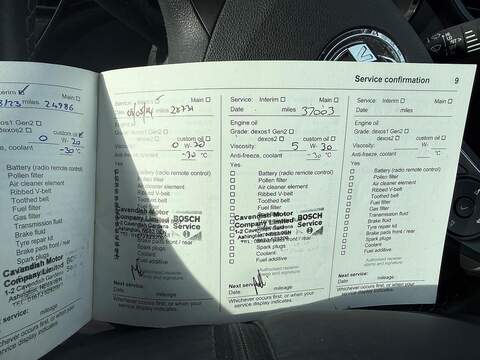 Service confirmation 9
nterim ☑ Main ☐
/23 miles 24986
dexos1 Gen2 ☐
dexos2 ☐ custom oil ☐
0 W- 20
e, coolant -30 °C
Battery (radio remote control)
Pollen filter
Air cleaner element
Ribbed V-belt
Toothed belt
Fuel filter
Gas filter
Transmission fluid
Brake fluid
Tyre repair kit
Brake pads front / rear
Spark plugs
Coolant
Fuel additive
Cavendish Motor
Company Limited
1-2 Cavendish Gardens
service:
mileage
ever occurs first, or when your
e display indicates.
Main ☐
miles 28731
dexos1 Gen2 ☐
custom oil ☐
0 W- 20
Anti-freeze, coolant -30 °C
Yes
Battery (radio remote control)
Pollen filter
Air cleaner element
Ribbed V-belt
Toothed belt
Fuel filter
Cavendish Motor BOSCH
Company Limited Service
1-2 Cavendish Gardens
Brake pads front / rear
Spark plugs
Coolant
Fuel additive
Authorised repairer
stamp and signature
Next service:
Date mileage
Whichever occurs first, or when your
service display indicates.
Service: Interim ☐ Main ☐
Date miles 37003
Engine oil
Grade: dexos1 Gen2 ☐
dexos2 ☐ custom oil ☐
Viscosity: 5 W- 30
Anti-freeze, coolant -30 °C
Yes
Battery (radio remote control)
Pollen filter
Air cleaner element
Ribbed V-belt
Toothed belt
Fuel filter
Cavendish Motor BOSCH
Company Limited Service
1-2 Cavendish Gardens
Brake pads front / rear
Spark plugs
Coolant
Fuel additive
Authorised repairer
stamp and signature
Next service:
Date mileage
Whichever occurs first, or when your
service display indicates.
Service: Interim ☐ Main ☐
Date miles
Engine oil
Grade: dexos1 Gen2 ☐
dexos2 ☐ custom oil ☐
Viscosity: W-
Anti-freeze, coolant °C
Yes
☐ Battery (radio remote control)
☐ Pollen filter
☐ Air cleaner element
☐ Ribbed V-belt
☐ Toothed belt
☐ Fuel filter
☐ Gas filter
☐ Transmission fluid
☐ Brake fluid
☐ Tyre repair kit
☐ Brake pads front / rear
☐ Spark plugs
☐ Coolant
☐ Fuel additive
Authorised repairer
stamp and signature
Next service:
Date mileage
Whichever occurs first, or when your
service display indicates.